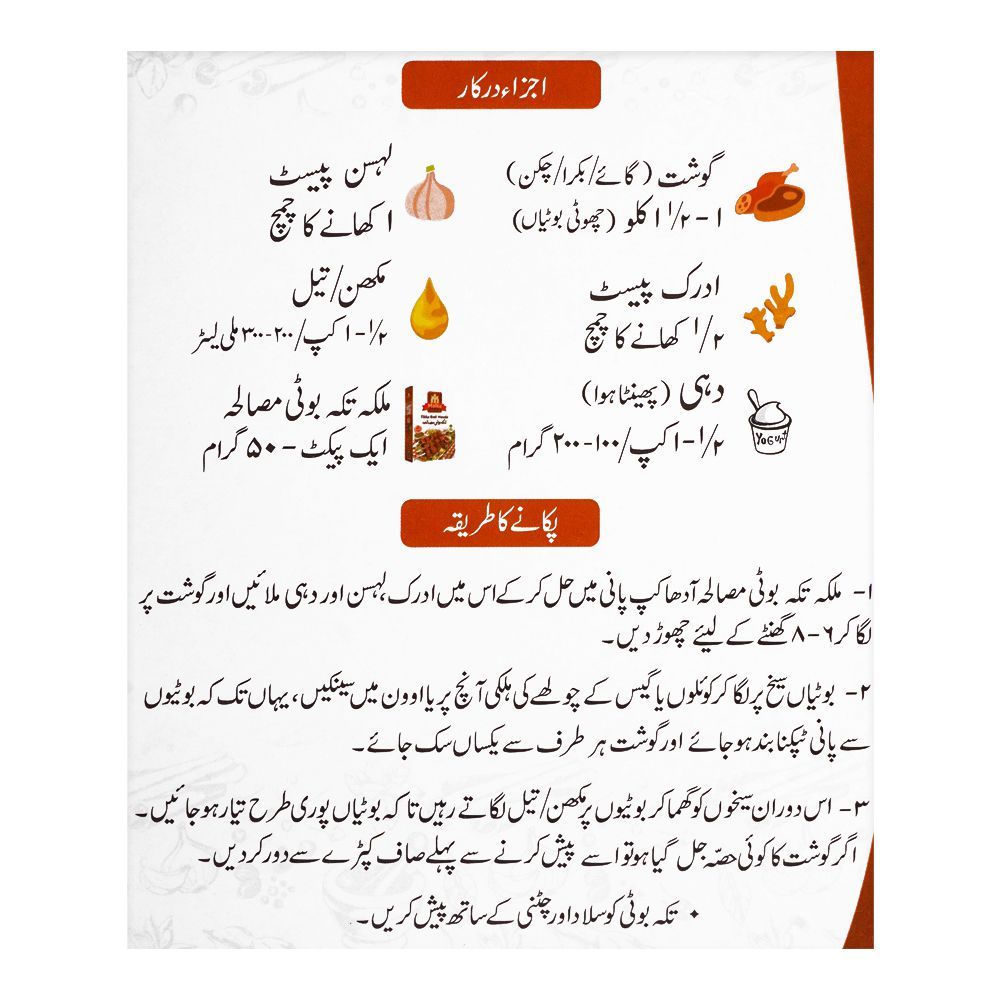 اجزاء درکار
گوشت (گائے/بکرا/چکن)
۱ - ۱/۲ ۱ کلو (چھوٹی بوٹیاں)
لہسن پیسٹ
۱ کھانے کا چمچ
ادرک پیسٹ
۱/۲ کھانے کا چمچ
مکھن/تیل
۱/۲-۱ کپ/۲۰۰-۳۰۰ ملی لیٹر
دہی (پھینٹا ہوا)
۱/۲-۱ کپ/۱۰۰-۲۰۰ گرام
YOGURT
ملکہ تکہ بوٹی مصالحہ
ایک پیکٹ - ۵۰ گرام
پکانے کا طریقہ
۱- ملکہ تکہ بوٹی مصالحہ آدھا کپ پانی میں حل کر کے اس میں ادرک، لہسن اور دہی ملائیں اور گوشت پر
لگا کر ۶-۸ گھنٹے کے لیئے چھوڑ دیں۔
۲- بوٹیاں سیخ پر لگا کر کوئلوں یا گیس کے چولھے کی ہلکی آنچ پر یا اوون میں سینکیں، یہاں تک کہ بوٹیوں
سے پانی ٹپکنا بند ہو جائے اور گوشت ہر طرف سے یکساں سک جائے۔
۳- اس دوران سیخوں کو گھما کر بوٹیوں پر مکھن/تیل لگاتے رہیں تا کہ بوٹیاں پوری طرح تیار ہو جائیں۔
اگر گوشت کا کوئی حصّہ جل گیا ہو تو اسے پیش کرنے سے پہلے صاف کپڑے سے دور کر دیں۔
• تکہ بوٹی کو سلاد اور چٹنی کے ساتھ پیش کریں۔